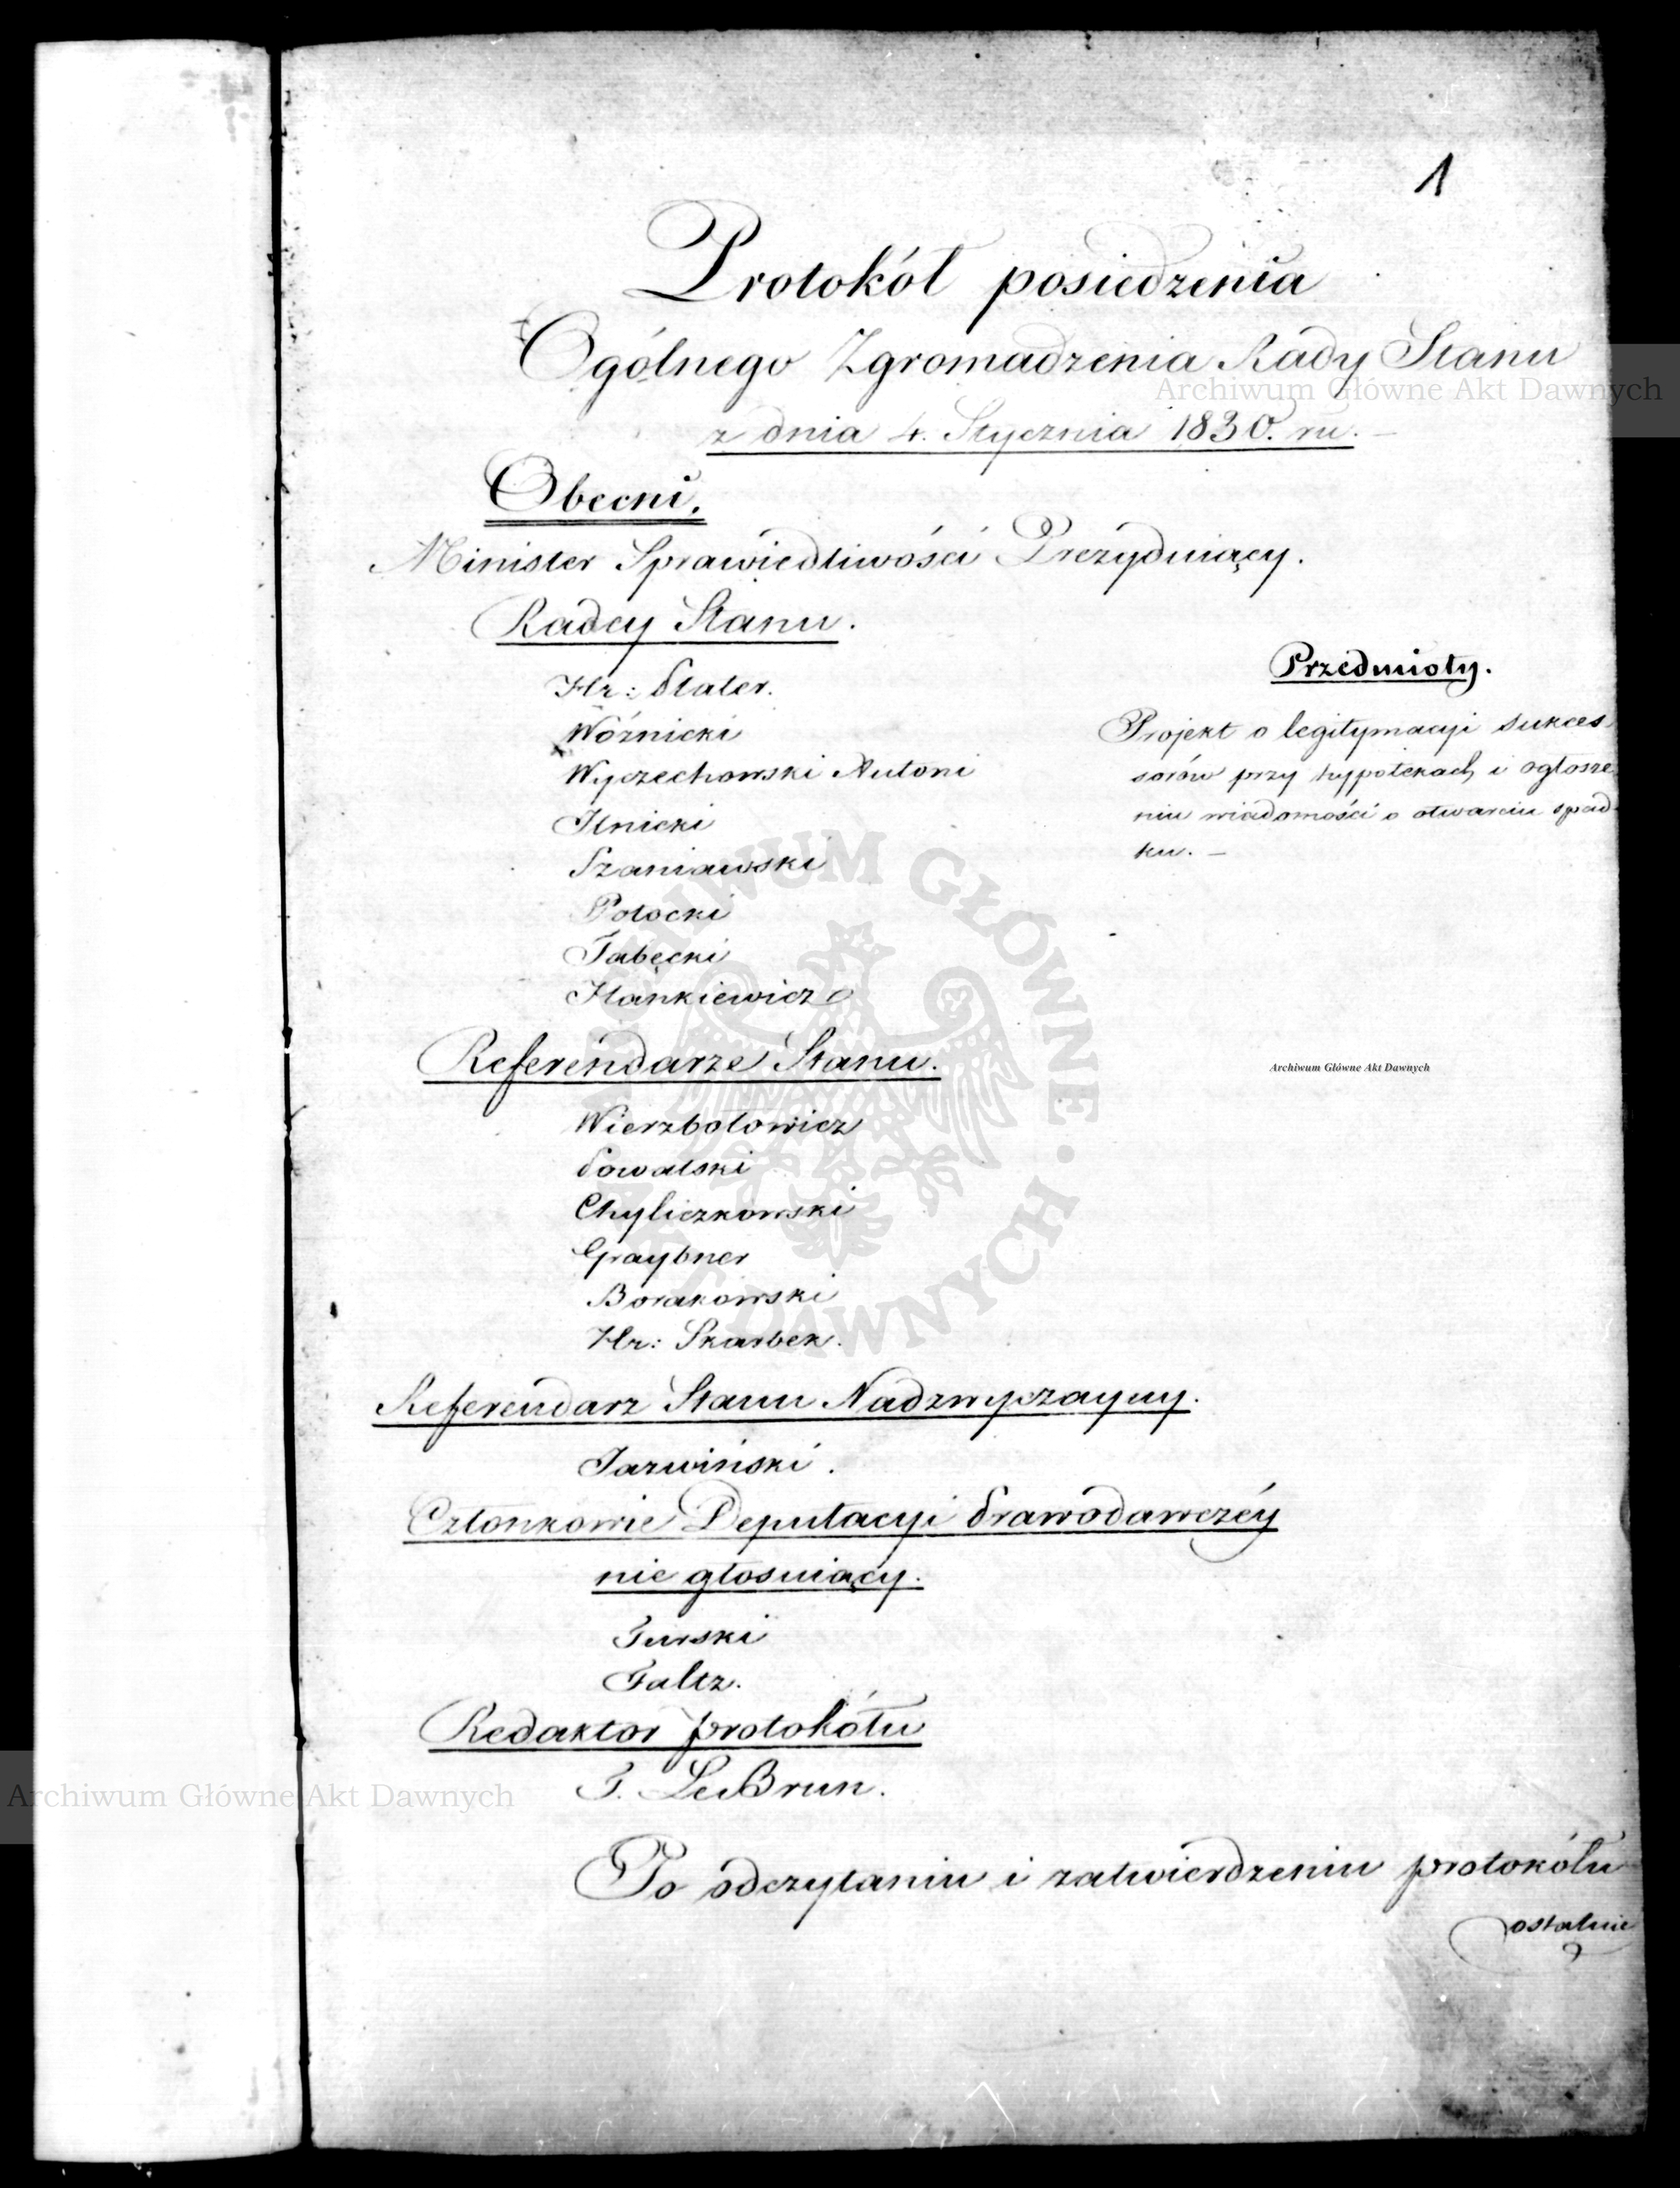 1
Protokół posiedzenia
Ogólnego Zgromadzenia Rady Stanu
z dnia 4. Stycznia 1830. ru.
Obecni.
Minister Sprawiedliwości Prezyduiący.
Radcy Stanu.
Hr: Plater.
Woźnicki
Wyczechowski Antoni
Ilnicki
Szaniawski
Potocki
Tabęcki
Hankiewicz
Referendarze Stanu.
Wierzbołowicz
Powalski
Chyliczkowski
Graybner
Borakowski
Hr: Skarbek.
Referendarz Stanu Nadzwyczayny.
Jarwiński.
Członkowie Deputacyi Prawodawczéy
nie głosuiący.
Turski
Faltz.
Redaktor protokółu
T. LeBrun.
Przedmioty.
Projekt o legitymacyi sukces
sorów przy hypotekach i ogłosze
niu wiadomości o otwarciu spad-
ku. –
Po odczytaniu i zatwierdzeniu protokółu
ostatnie
Archiwum Główne Akt Dawnych
Archiwum Główne Akt Dawnych
Archiwum Główne Akt Dawnych
ARCHIWUM GŁÓWNE • AKT DAWNYCH